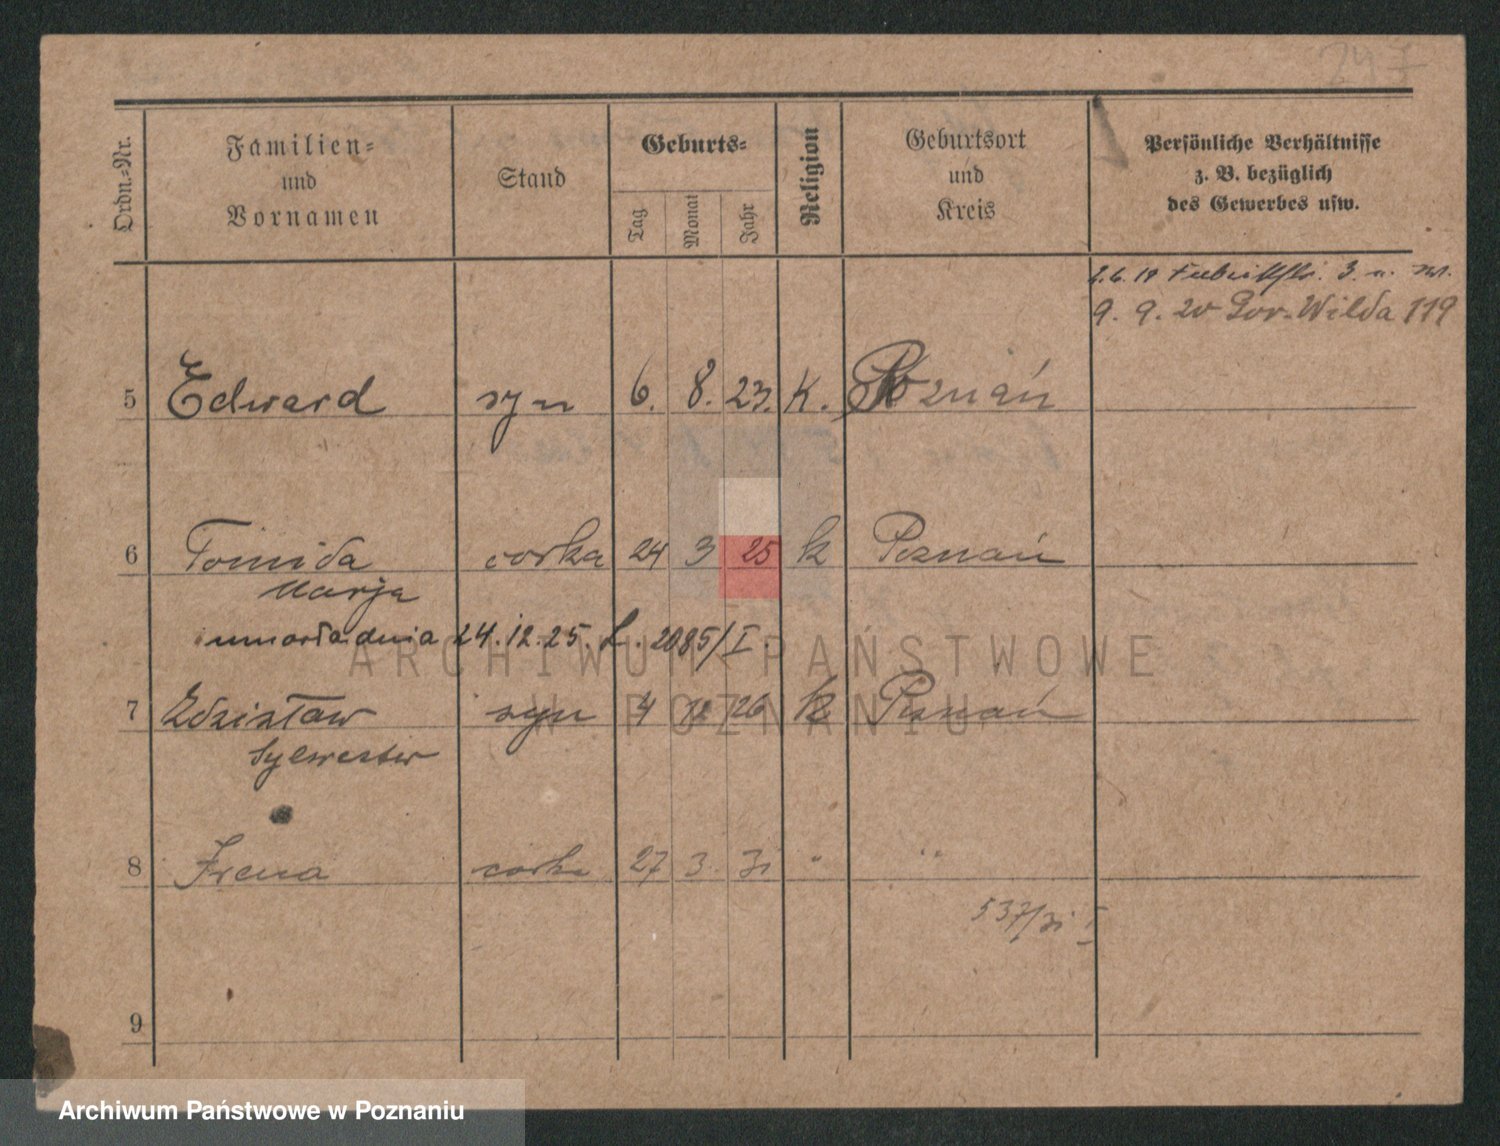 247
Ordn.-Nr.
Familien-
und
Vornamen
Stand
Geburts-
Tag
Monat
Jahr
Religion
Geburtsort
und
Kreis
Persönliche Verhältnisse
z. B. bezüglich
des Gewerbes usw.
9. 9. 20 Gór. Wilda 119
5 Edward syn 6. 8. 23. K. Poznań
6 corka 24 3 25 k Poznań
Marja
umarła dnia 24.12.25. L. 2085/I.
7 Zdzisław syn 4 12 26 k Poznań
Sylwester
8 Irena corka 27 3 31 " "
537/31 I
9
ARCHIWUM PAŃSTWOWE
W POZNANIU
Archiwum Państwowe w Poznaniu